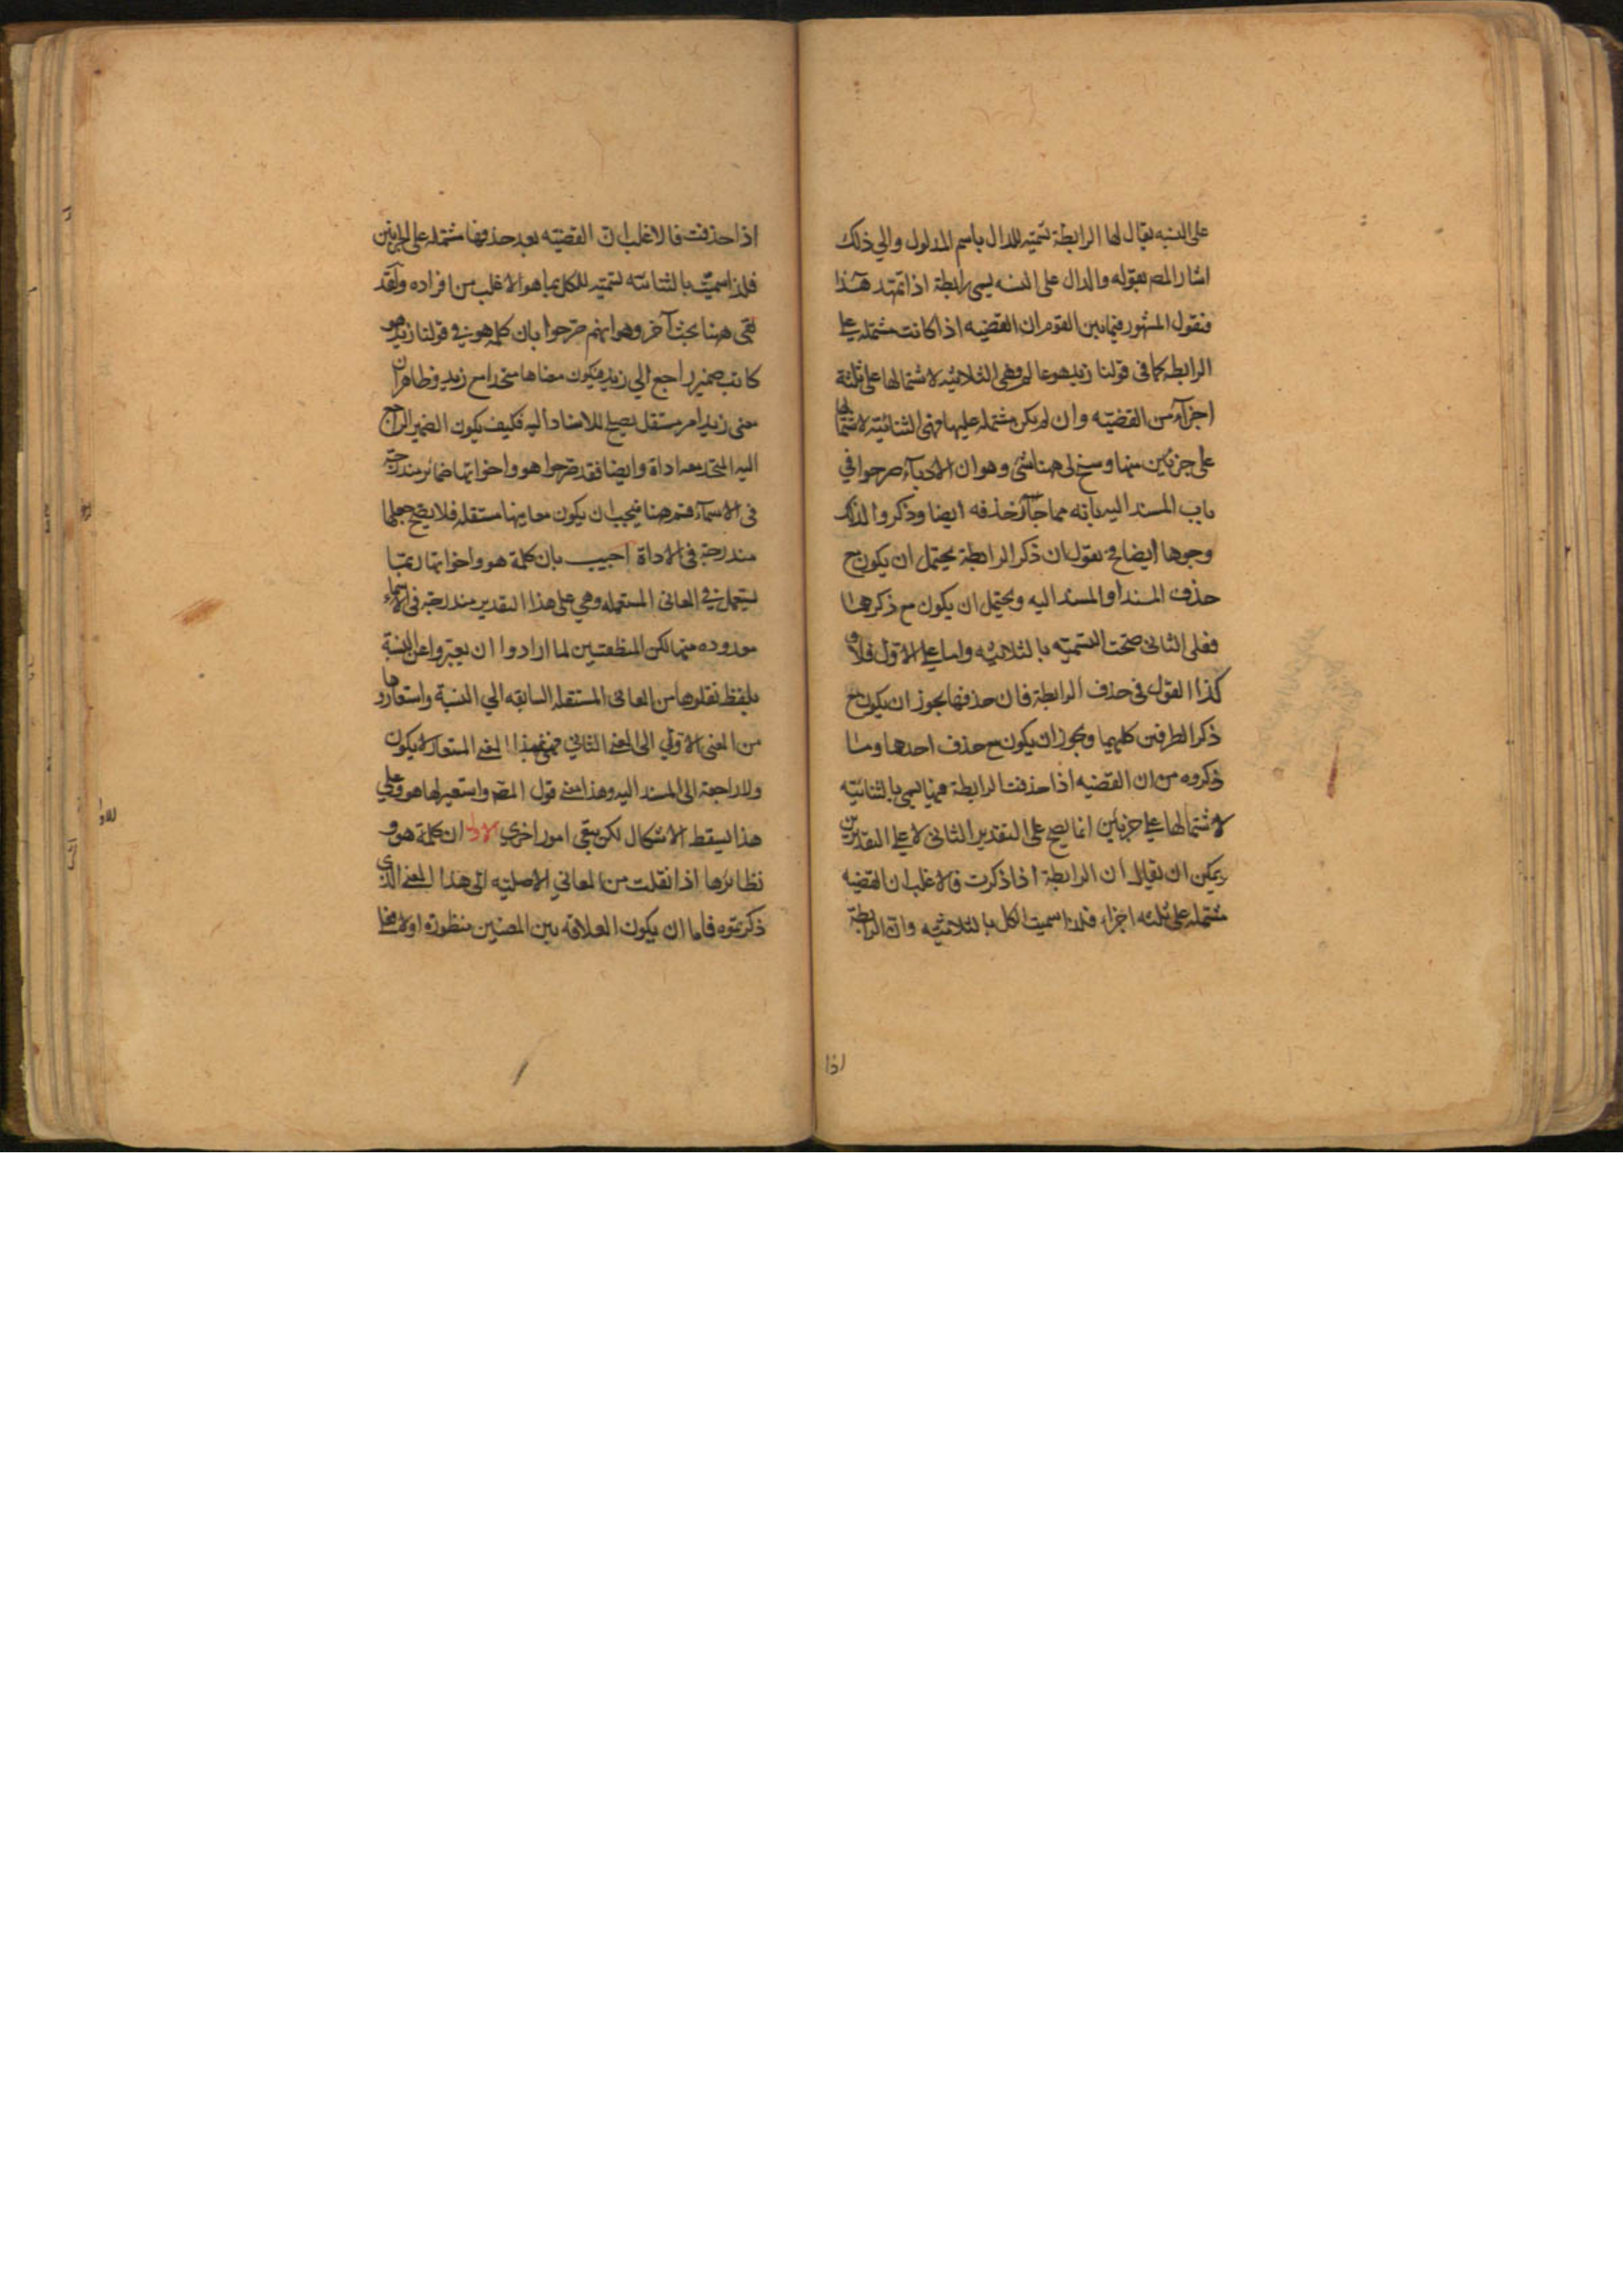 على النسبه يقال لها الرابطة تسميه للدال باسم المدلول والي ذلك
اشار المصر بقوله والدال على النسبه يسمى رابطة اذا تمهد هذا
فنقول المشهور فيما بين القوم ان القضيه اذا كانت مشتمله على
الرابطه كما في قولنا زيد هو عالم وهي الثلاثيه لاشتمالها على ثلثة
اجزآء من القضيّه وان لم يكن مشتمله عليها فهى الثنائيّه لاشتمالها
على جزئين منها وسنح لى ههنا شئ وهو ان الادباء صرحوا في
باب المسند اليه بانه مما جآز حذفه ايضا وذكروا لذلك
وجوها ايضا فح نقول ان ذكر الرابطة يحتمل ان يكون مع
حذف المسند او المسند اليه ويحتمل ان يكون مع ذكرهما
فعلى الثاني صحت التسميّه بالثلاثيّه واما على الاوّل فلا و
كذا القول فى حذف الرابطة فان حذفها يجوز ان يكون مع
ذكر الطرفين كليهما ويجوز ان يكون مع حذف احدهما وما
ذكروه من ان القضيه اذا حذفت الرابطة عنها يسمى بالثنائيّه
لاشتمالها على جزئين انما يصح على التقدير الثانى لا على التقديرين
ويمكن ان يقال ان الرابطة اذا ذكرت فالاغلب ان القضيه
مشتمله على ثلثه اجزاء فلذا سميت الكل بالثلاثيّه وانّ الرابطة
اذا
اذا حذفت فالاغلب انّ القضيّه بعد حذفها مشتمله على الجزئين
فلذا سميّت بالثنائيّه تسميّه للكل بما هو الاغلب من افراده ولقد
بقى ههنا بحث آخر وهو انهم صرّحوا بان كلمه هو في قولنا زيد هو
كاتب ضمير راجع الي زيد فيكون معناها متحدا مع زيد وظاهر ان
معنى زيد امر مستقل يصلح للاسناد اليه فكيف يكون الضمير الراجع
اليه المتحد معه اداة وايضا فقد صرّحوا هو واخواتها ضمائر مندرجّة
فى الاسمآء فمن هنا فيجب ان يكون معانيها مستقله فلا يصحّ جعلها
مندرجة فى الاداة اجيب بان كلمة هو واخواتها ربّما
يستعمل في المعانى المستقله وهي على هذا التقدير مندرجّه فى الاسماء
معدوده منها لكن المنطقيين لما ارادوا ان يعبّروا عن النسبة
بلفظ نقلوها من المعانى المستقله السابقه الي النسبة واستعاروها
من المعنى الاوّلي الى المعنى الثاني فهى بهذا المعنى المستعار لا يكون
ولا راجعة الى المسند اليه وهذا معنى قول المصر واستعير لها هو وعلى
هذا يسقط الاشكال لكن يبقى امور اخرى الاول ان كلمة هو و
نظائرها اذا نقلت من المعاني الاصليّه الى هذا المعنى الذي
ذكرتموه فاما ان يكون العلاقه بين المعنيين منظورة اولا